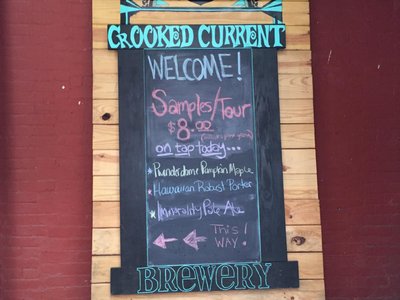 CROOKED CURRENT
WELCOME!
Samples/Tour
$8.00
on tap today...
Punderdome Pumpkin Maple
Hawaiian Robust Porter
Immorality Pale Ale
This!
WAY!
BREWERY